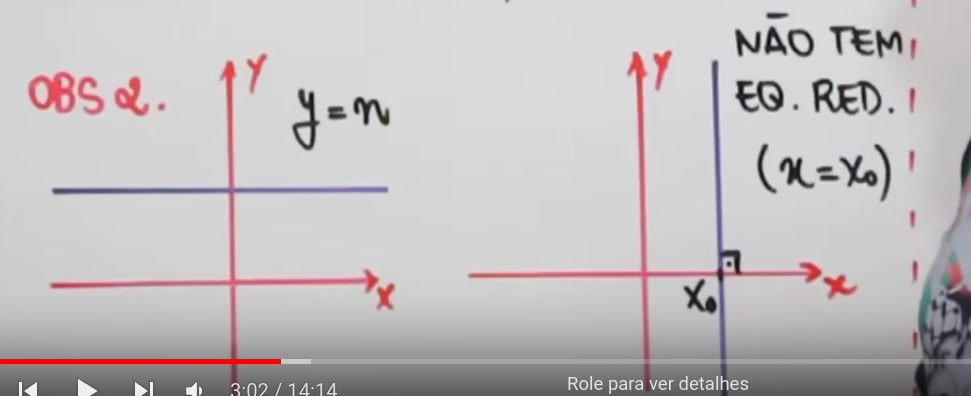 OBS 2.
Y
y = n
X
Y
NÃO TEM
EQ. RED.
(x = x₀)
X₀
X
3:02 / 14:14
Role para ver detalhes